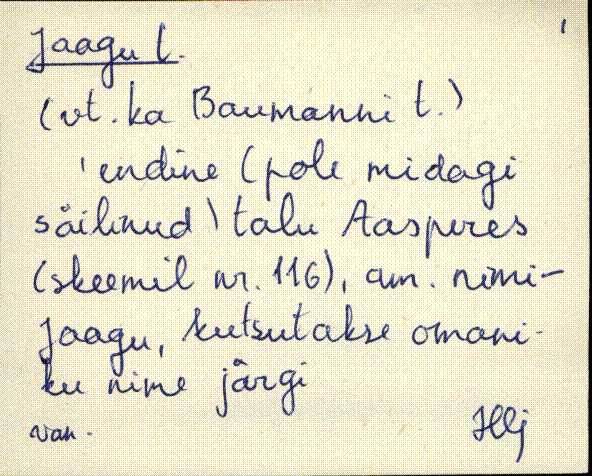 Jaagu t.
(vt. ka Baumanni t.)
'endine (pole midagi
säilinud) talu Aasperes
(skeemil nr. 116), am. nimi-
Jaagu, kutsutakse omani-
ku nime järgi
van.